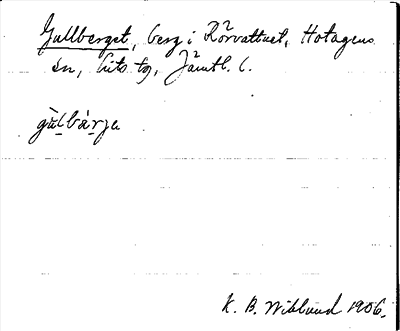 Gullberget, berg i Rörvattnet, Hotagens
sn, Lits tg, Jämtl. l.
gùlbàrje
K. B. Wiklund 1906.